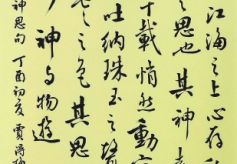 江海之上心存
之思也其神
載悄然動容
吐纳珠玉之聲
之色其思
神与物遊
神思句 丁酉初夏 贾